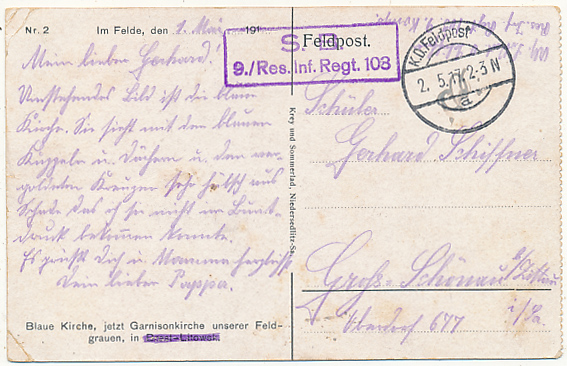 Nr. 2 Im Felde, den 1. Mai 191
Mein lieber Gerhard!
Umstehendes Bild ist die blaue
Kirche. Sie sieht mit den blauen
Kuppeln u. Dächern u. den ver-
goldeten Kreuzen sehr hübsch aus
Schade das ich sie nicht in Bunt-
druck bekommen konnte.
Es grüßt Dich u. Mamma herzlichst
Dein lieber Pappa.
Blaue Kirche, jetzt Garnisonkirche unserer Feld-
grauen, in Brest-Litowsk
Krey und Sommerlad, Niedersedlitz-
S. B.
9./Res. Inf. Regt. 103
Feldpost.
K.D. Feldpost
2. 5. 17. 2-3 N
a
Schüler
Gerhard Schiffner
Groß-Schönau b/Zittau
Oberdorf 677 i/Sa.